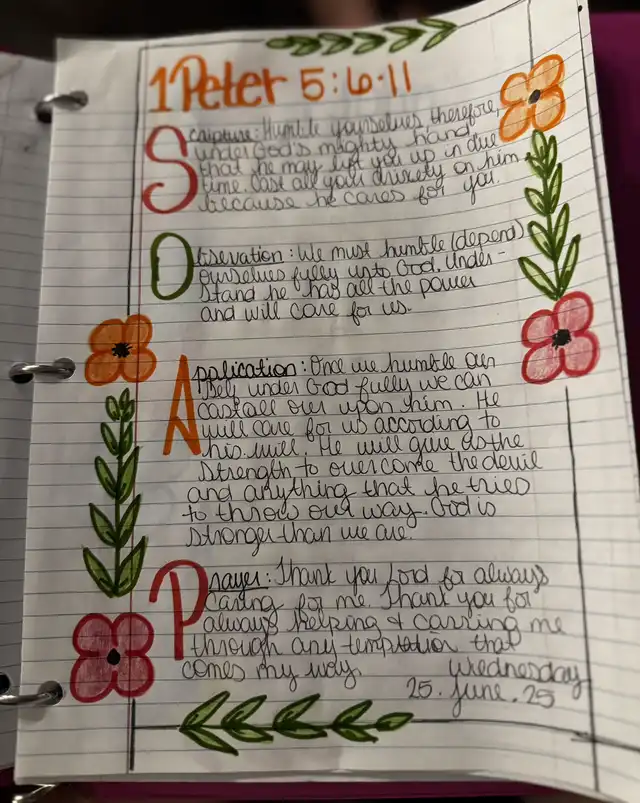 1 Peter 5:6-11
Scripture: Humble yourselves, therefore,
under God's mighty hand
that he may lift you up in due
time. Cast all your anxiety on him
because he cares for you.
Observation: We must humble (depend)
ourselves fully unto God. Under-
stand he has all the power
and will care for us.
Application: Once we humble our
self under God fully we can
cast all our upon him. He
will care for us according to
his will. He will give us the
strength to overcome the devil
and anything that he tries
to throw our way. God is
stronger than we are.
Prayer: Thank you Lord for always
caring for me. Thank you for
always helping & carring me
through any temptation that
comes my way.
Wednesday
25. June. 25